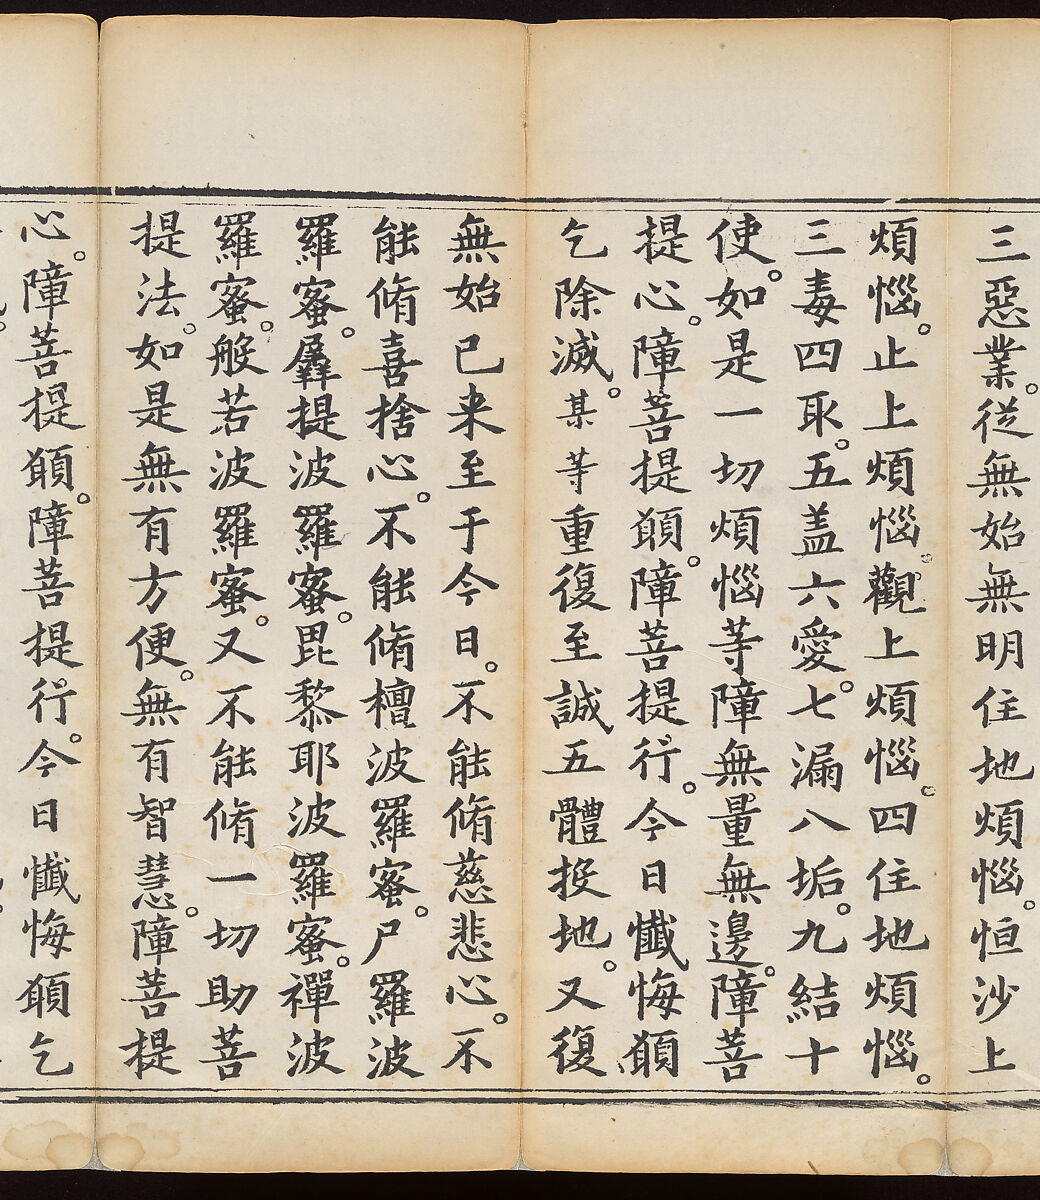 三惡業。從無始無明住地煩惱。恒沙上
煩惱。止上煩惱。觀上煩惱。四住地煩惱。
三毒四取。五盖六愛。七漏八垢。九結十
使。如是一切煩惱等障無量無邊。障菩
提心。障菩提願。障菩提行。今日懺悔願
乞除滅。某等重復至誠五體投地。又復
無始已来至于今日。不能脩慈悲心。不
能脩喜捨心。不能脩檀波羅蜜。尸羅波
羅蜜。羼提波羅蜜。毘黎耶波羅蜜。禪波
羅蜜。般若波羅蜜。又不能脩一切助菩
提法。如是無有方便。無有智慧。障菩提
心。障菩提願。障菩提行。今日懺悔願乞